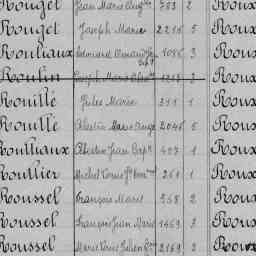 Rouget Jean Marie Augte 703 2 Roux
Rouget Joseph Marie 2216 5 Roux
Rouliaux 1086 3 Roux
Roulin Joseph Marie 1218 3 Roux
Rouillé Jules Marie 311 1 Roux
Rouillé Célestin Marie Ange 2046 5 Roux
Roulliaux Célestin Jean Bapt 407 1 Roux
Roullier Michel Louis 261 1 Roux
Roussel François Marie 568 2 Roux
Roussel François Jean Marie 1469 3 Roux
Roussel Marie Louis Julien 2169 5 Roux